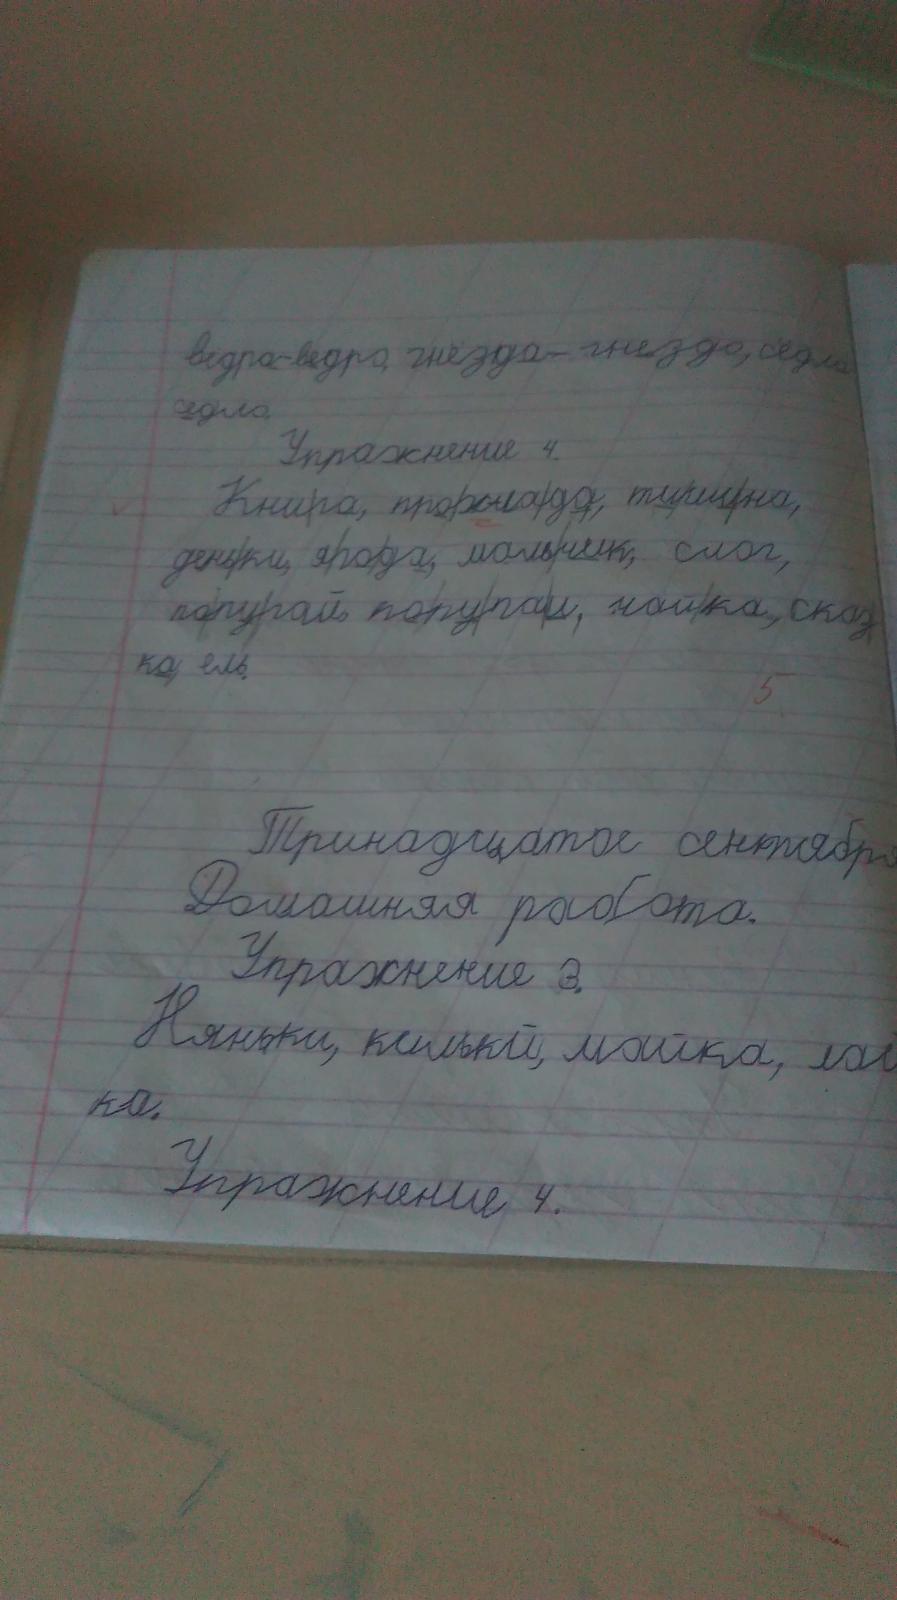 ведра-ведро, гнёзда-гнездо, сёдла
седло.
Упражнение 4.
Книга, прохлада, тишина,
деньки, ягода, мальчик, слог,
попугай, попугаи, чайка, сказ
ка, ель.
5
Тринадцатое сентября
Домашняя работа.
Упражнение 3.
Няньки, кильки, майка, лай
ка.
Упражнение 4.